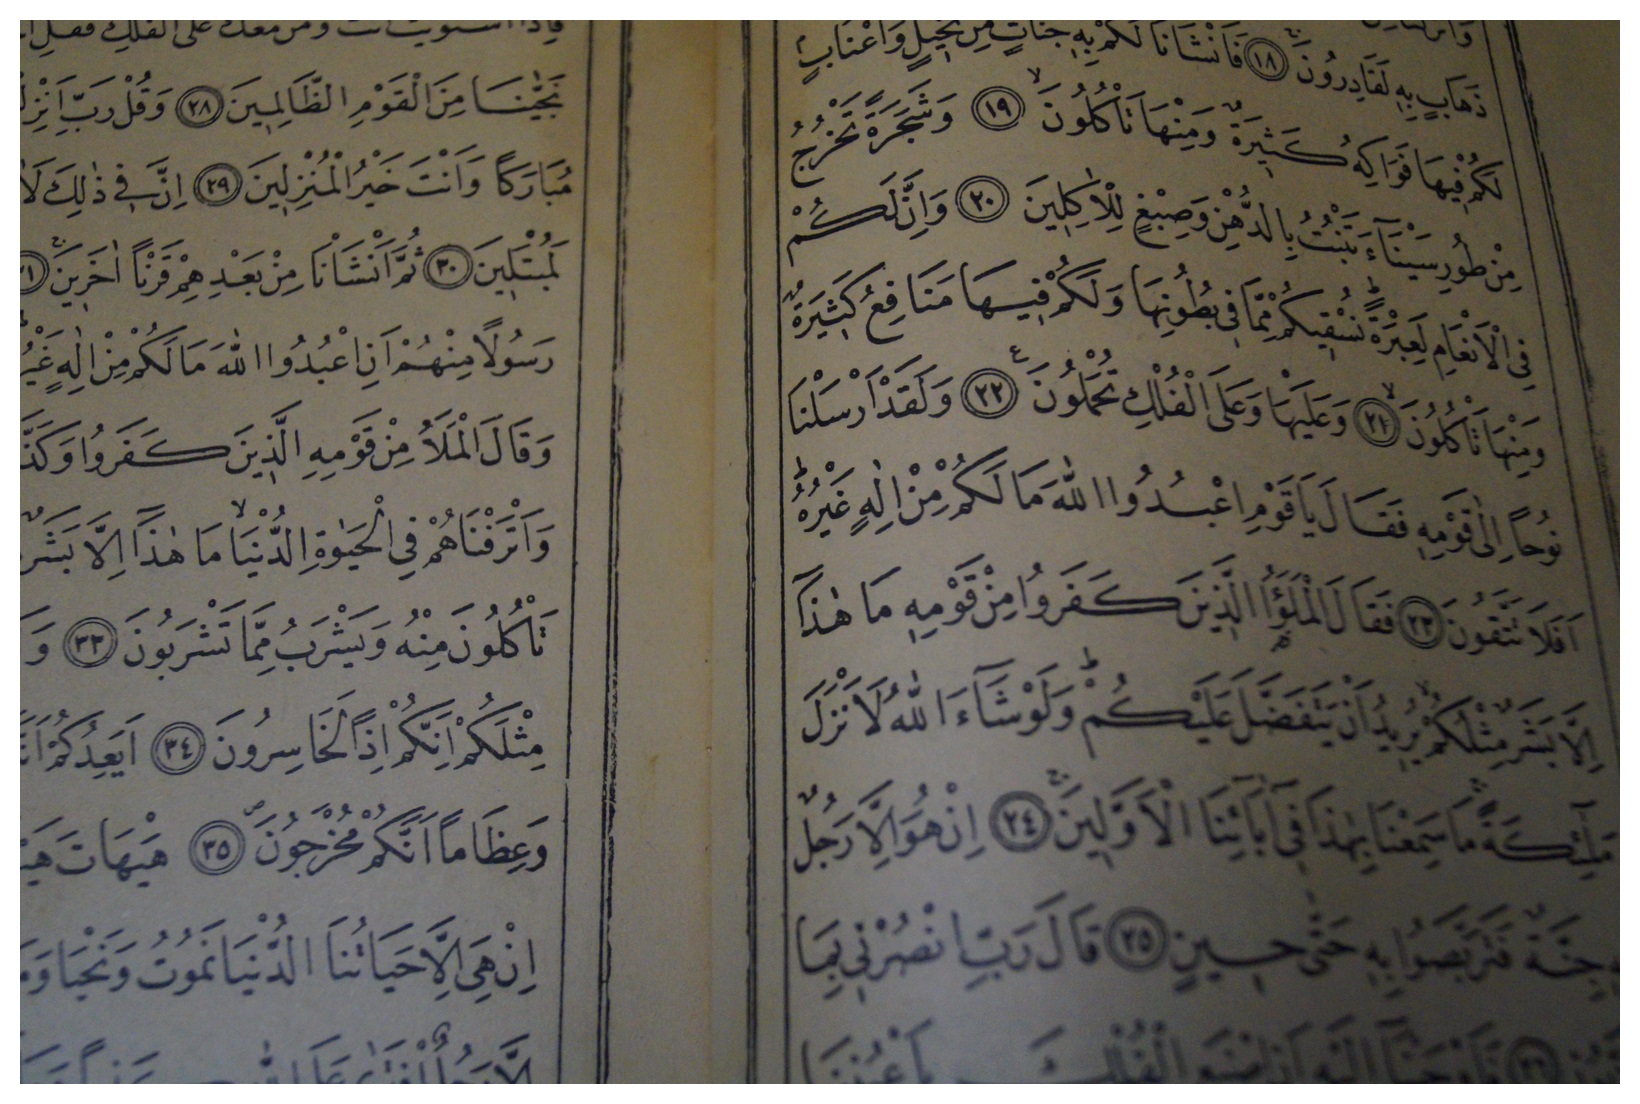 ذَهَابٍ بِهِ لَقَادِرُونَ ﴿١٨﴾ فَاَنْشَأْنَا لَكُمْ بِهِ جَنَّاتٍ مِنْ نَخِيلٍ وَاَعْنَابٍ
لَكُمْ فِيهَا فَوَاكِهُ كَثِيرَةٌ وَمِنْهَا تَأْكُلُونَ ﴿١٩﴾ وَشَجَرَةً تَخْرُجُ
مِنْ طُورِ سَيْنَاءَ تَنْبُتُ بِالدُّهْنِ وَصِبْغٍ لِلْاٰكِلِينَ ﴿٢٠﴾ وَاِنَّ لَكُمْ
فِي الْاَنْعَامِ لَعِبْرَةً نُسْقِيكُمْ مِمَّا فِي بُطُونِهَا وَلَكُمْ فِيهَا مَنَافِعُ كَثِيرَةٌ
وَمِنْهَا تَأْكُلُونَ ﴿٢١﴾ وَعَلَيْهَا وَعَلَى الْفُلْكِ تُحْمَلُونَ ﴿٢٢﴾ وَلَقَدْ اَرْسَلْنَا
نُوحًا اِلٰى قَوْمِهِ فَقَالَ يَا قَوْمِ اعْبُدُوا اللهَ مَا لَكُمْ مِنْ اِلٰهٍ غَيْرُهُ
اَفَلَا تَتَّقُونَ ﴿٢٣﴾ فَقَالَ الْمَلَؤُا الَّذِينَ كَفَرُوا مِنْ قَوْمِهِ مَا هٰذَا
اِلَّا بَشَرٌ مِثْلُكُمْ يُرِيدُ اَنْ يَتَفَضَّلَ عَلَيْكُمْ وَلَوْ شَاءَ اللهُ لَاَنْزَلَ
مَلٰئِكَةً مَا سَمِعْنَا بِهٰذَا فِي اٰبَائِنَا الْاَوَّلِينَ ﴿٢٤﴾ اِنْ هُوَ اِلَّا رَجُلٌ
بِهِ جِنَّةٌ فَتَرَبَّصُوا بِهِ حَتّٰى حِينٍ ﴿٢٥﴾ قَالَ رَبِّ انْصُرْنِي بِمَا
فَاَوْحَيْنَا اِلَيْهِ اَنِ اصْنَعِ الْفُلْكَ بِاَعْيُنِنَا
فَاِذَا اسْتَوَيْتَ اَنْتَ وَمَنْ مَعَكَ عَلَى الْفُلْكِ فَقُلِ
نَجّٰينَا مِنَ الْقَوْمِ الظَّالِمِينَ ﴿٢٨﴾ وَقُلْ رَبِّ اَنْزِلْنِي
مُبَارَكًا وَاَنْتَ خَيْرُ الْمُنْزِلِينَ ﴿٢٩﴾ اِنَّ فِي ذٰلِكَ
لَمُبْتَلِينَ ﴿٣٠﴾ ثُمَّ اَنْشَأْنَا مِنْ بَعْدِهِمْ قَرْنًا اٰخَرِينَ ﴿٣١﴾
رَسُولًا مِنْهُمْ اَنِ اعْبُدُوا اللهَ مَا لَكُمْ مِنْ اِلٰهٍ غَيْرُهُ
وَقَالَ الْمَلَاُ مِنْ قَوْمِهِ الَّذِينَ كَفَرُوا
وَاَتْرَفْنَاهُمْ فِي الْحَيٰوةِ الدُّنْيَا مَا هٰذَا اِلَّا بَشَرٌ
تَأْكُلُونَ مِنْهُ وَيَشْرَبُ مِمَّا تَشْرَبُونَ ﴿٣٣﴾
مِثْلَكُمْ اِنَّكُمْ اِذًا لَخَاسِرُونَ ﴿٣٤﴾ اَيَعِدُكُمْ
وَعِظَامًا اَنَّكُمْ مُخْرَجُونَ ﴿٣٥﴾ هَيْهَاتَ
اِنْ هِيَ اِلَّا حَيَاتُنَا الدُّنْيَا نَمُوتُ وَنَحْيَا